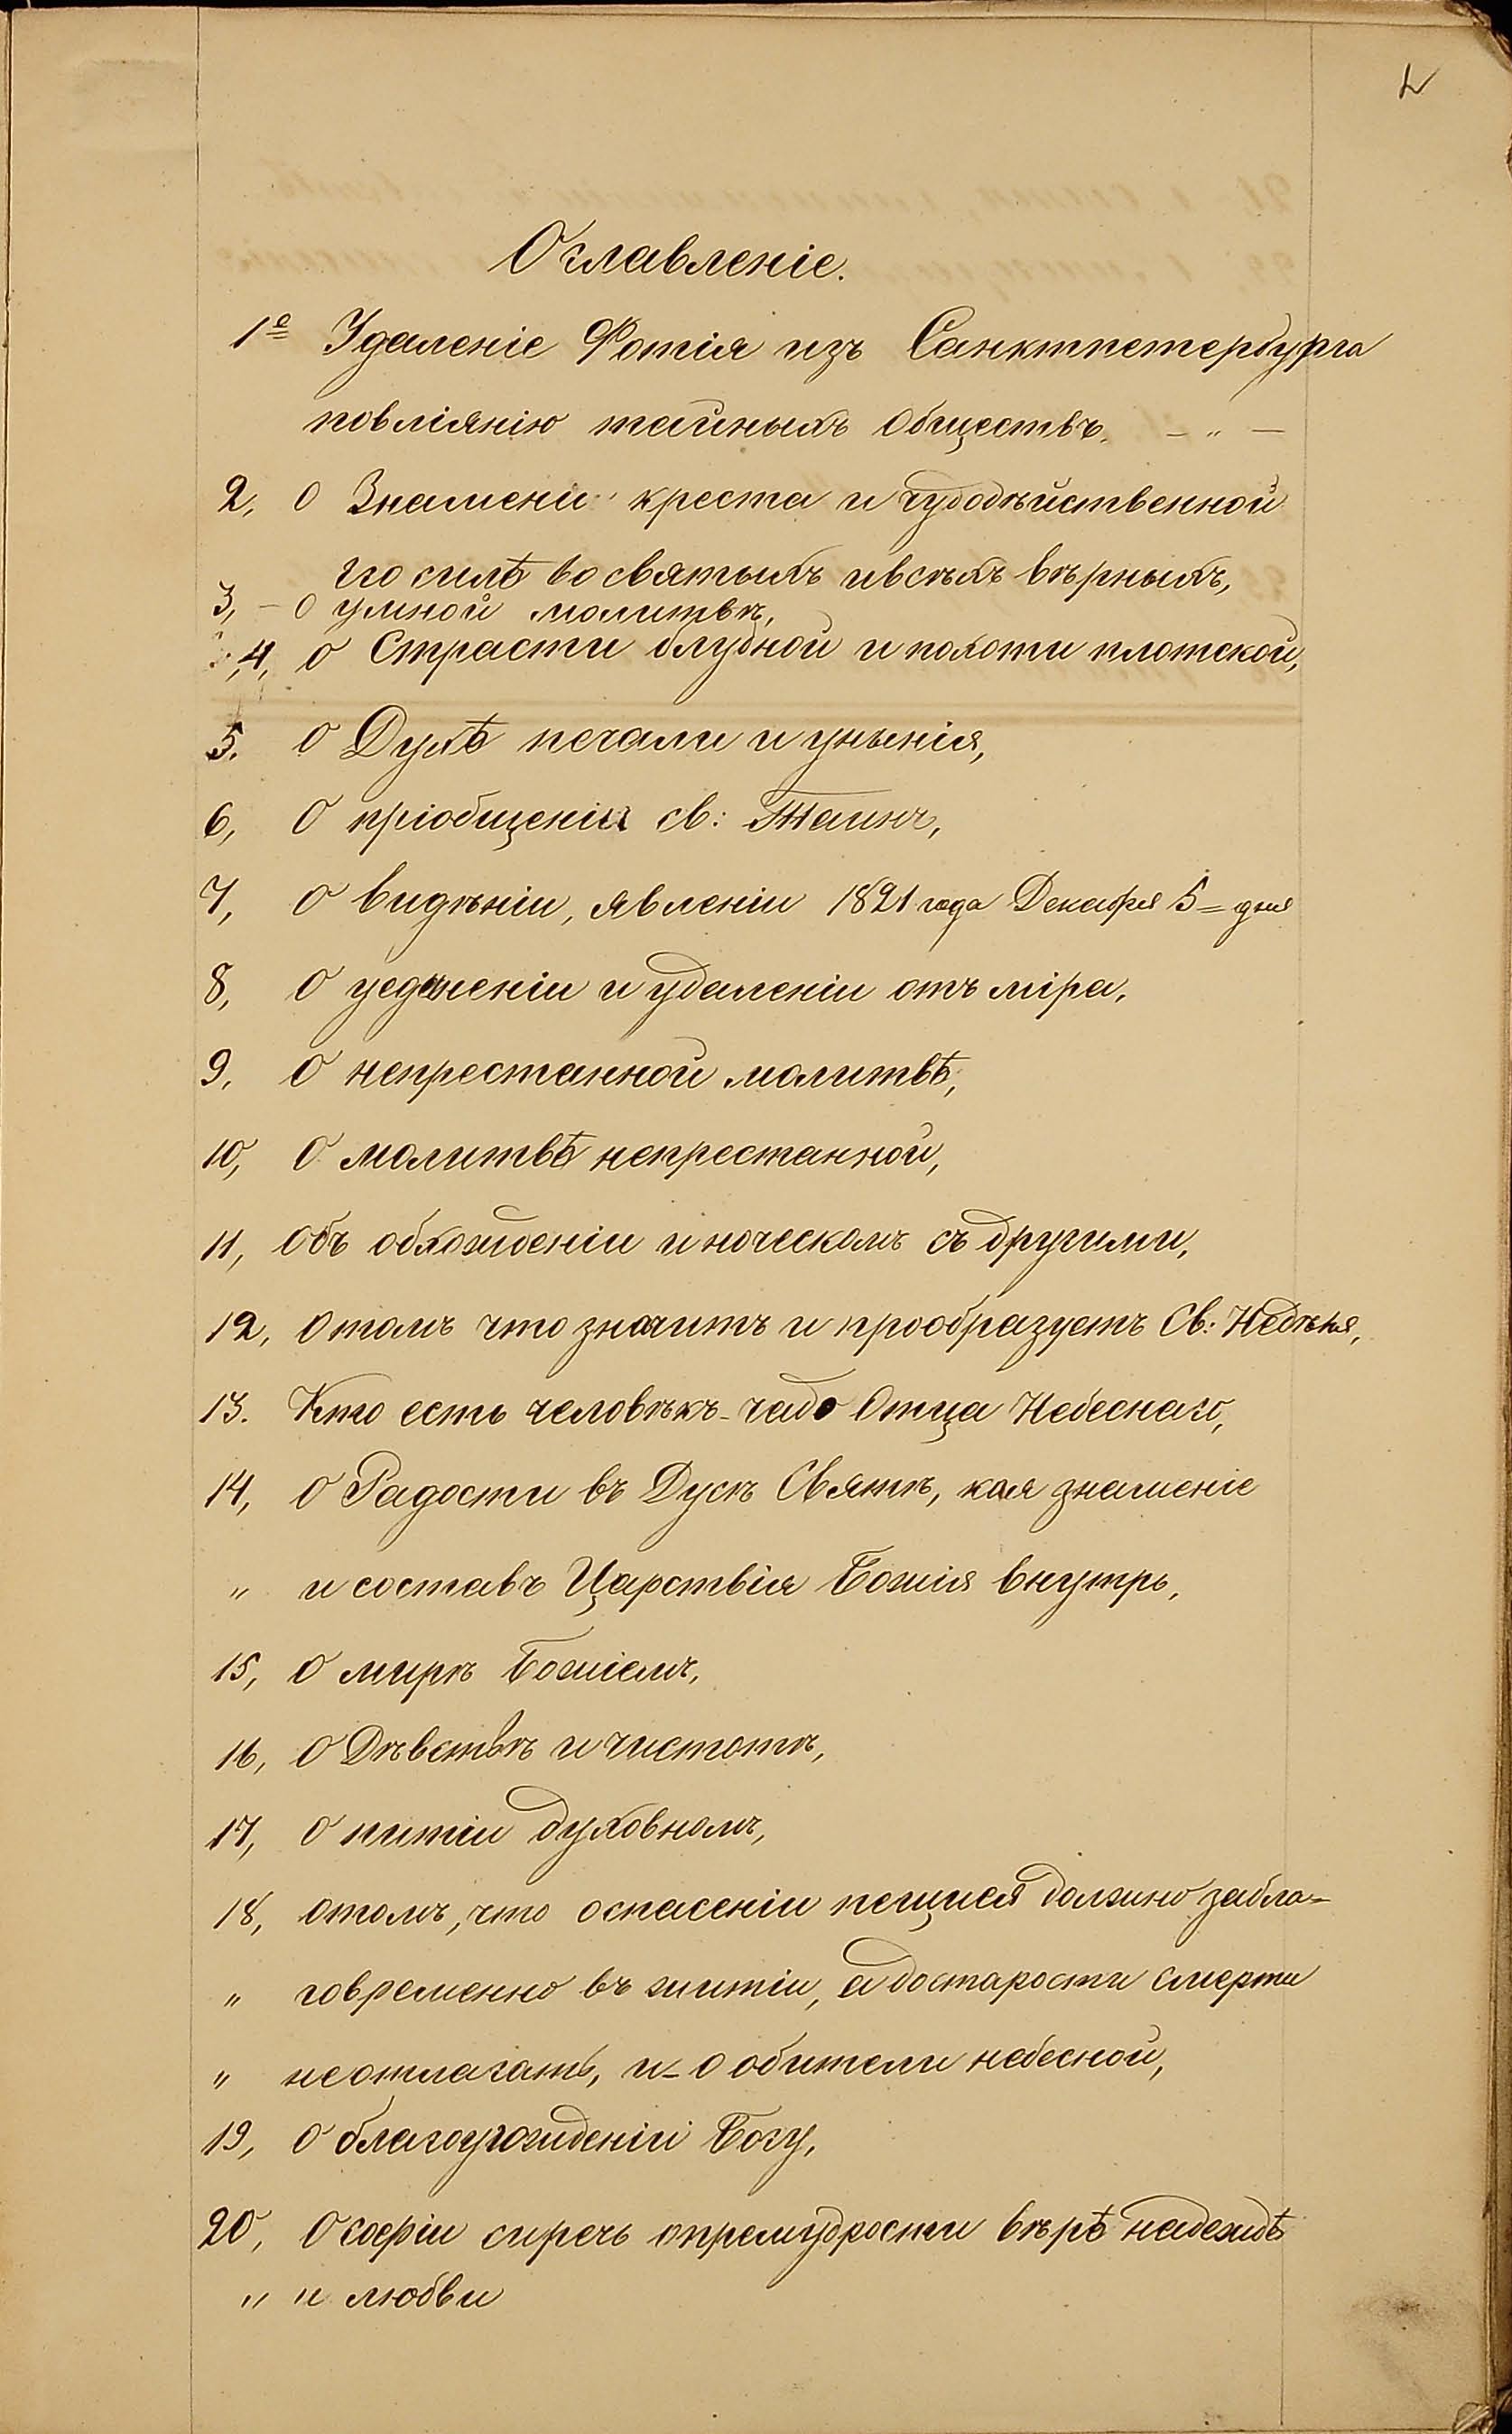 Оглавленіе.
1е Удаленіе Фотія изъ Санктпетербурга
повліянію тайныхъ обществъ. — „ —
2, О Знамени креста и чудодѣйственной
его силѣ во святыхъ ивсѣхъ вѣрныхъ,
3, — О умной молитвѣ,
4, О Страсти блудной и похоти плотской,
5. О Духѣ печали и унынія,
6, О пріобщеніи св: Таинъ,
7, О видѣніи, явленіи 1821 года Декабря 5 = дня
8, О уединеніи и удаленіи отъ міра,
9, О непрестанной молитвѣ,
10, О молитвѣ непрестанной,
11, Объ обхожденіи иноческомъ съ другими,
12, Отомъ что значитъ и прообразуетъ Св: Недѣля,
13. Кто есть человѣкъ - чадо Отца Небеснаго,
14, О Радости въ Дусѣ Святѣ, кая знаменіе
„ и составъ Царствія Божія внутрь,
15, О мирѣ Божіемъ,
16, О Дѣвствѣ и чистотѣ,
17, О питіи духовномъ,
18, Отомъ, что оспасеніи пещися должно забла-
„ говременно въ житіи, а достарости смерти
„ неотлагать, и - О обители небесной,
19, О благоугожденіи Богу,
20, О софіи сиречь опремудрости вѣрѣ надеждѣ
„ и любви